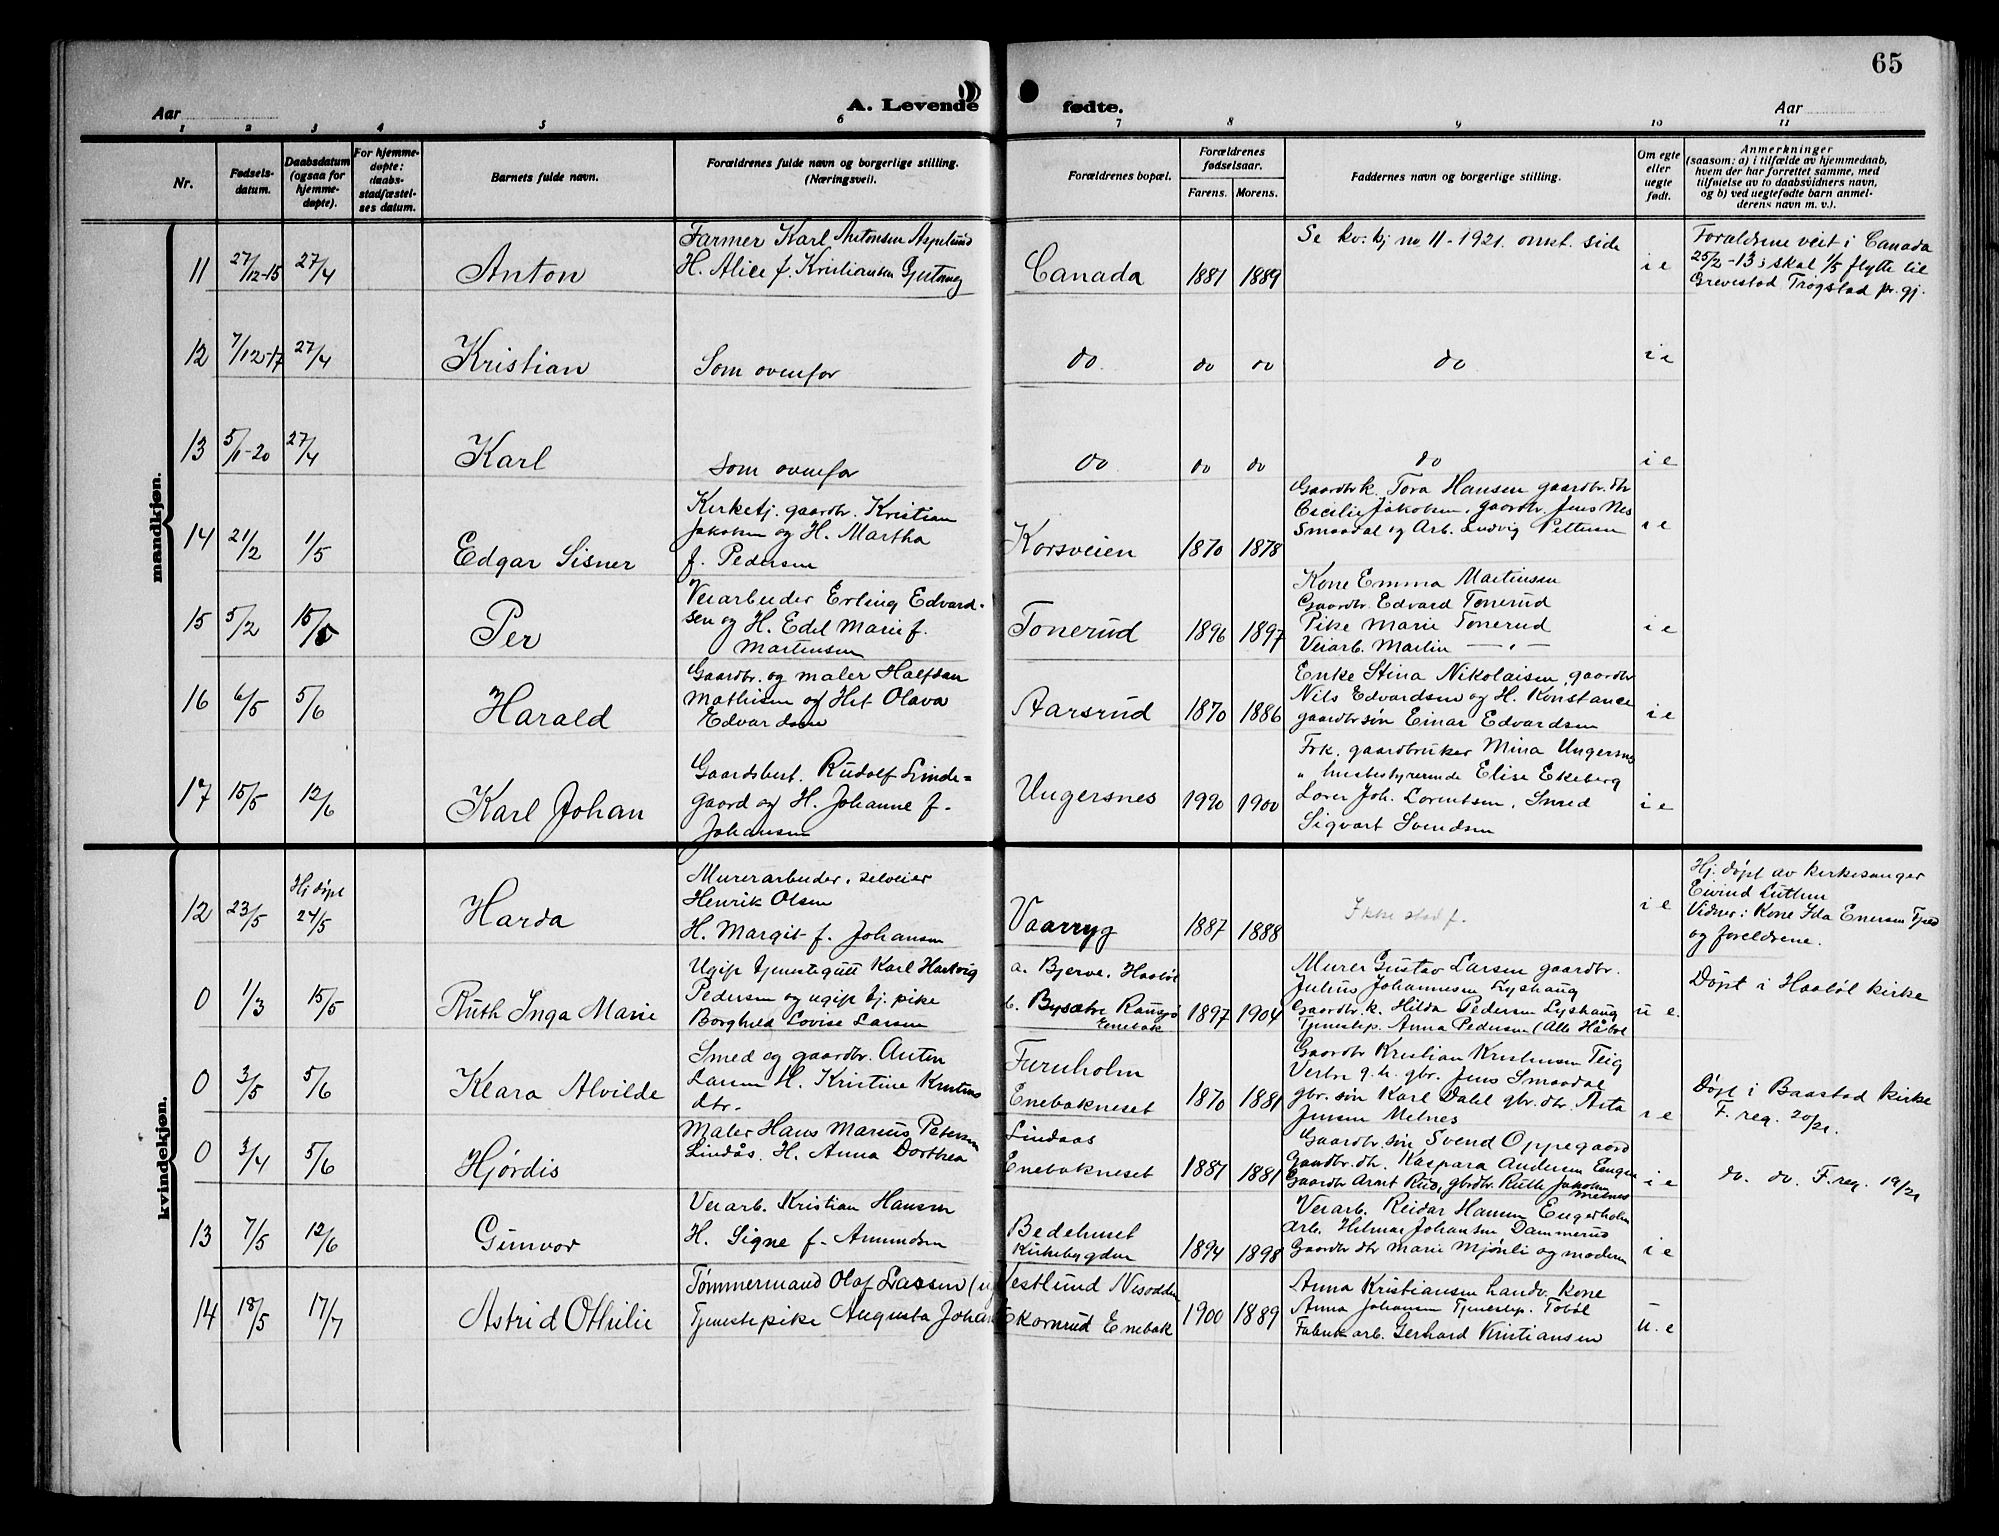 65
Aar
A. Levende
fødte.
Aar
1 2 3 4 5 6 7 8 9 10 11
Nr.
Fødsels-
datum.
Daabsdatum
(ogsaa for
hjemme-
døpte).
For hjemme-
døpte:
daabs-
stadfæstel-
ses datum.
Barnets fulde navn.
Forældrenes fulde navn og borgerlige stilling.
(Næringsvei).
Forældrenes bopæl.
Forældrenes
fødselsaar.
Farens. Morens.
Faddernes navn og borgerlige stilling.
Om egte
eller
uegte
født.
Anmerkninger
(saasom: a) i tilfælde av hjemmedaab,
hvem der har forrettet samme, med
tilføielse av to daabsvidners navn,
og b) ved uegtefødte barn anmel-
derens navn m. v.).
mandkjøn.
11 27/12-15 27/4 Anton
Farmer Karl Antonsen Aspelund
H. Alice f. Kristiansen
Canada 1881 1889
Se kv: kj no 11 - 1921. omst. side
i e
Foraldrene viet i Canada
25/2 - 13; skal 1/5 flytte til
Grevestad Trøgstad pr. gj.
12 7/12-17 27/4 Kristian
Som ovenfor
do do do do i e
13 5/1-20 27/4 Karl
Som ovenfor
do do do do i e
14 21/2 1/5 Edgar Sisner
Kirketj. gaardbr. Kristian
Jakobsen og H. Martha
f. Pedersen
Korsveien 1870 1878
Gaardbrk. Tora Hansen gaardbr. dtr
Cecilie Jakobsen, gaardbr. Jens Nes
Smaadal og Arb. Ludvig Pettersen
i e
15 5/2 15/5 Per
Veiarbeider Erling Edvard-
sen og H. Edel Marie f.
Martinsen
Tonerud 1896 1897
Kone Emma Martinsen
Gaardbr. Edvard Tonerud
Pike Marie Tonerud
Veiarb. Martin — „ —
i e
16 6/5 5/6 Harald
Gaardbr. og maler Halfdan
Mathisen og Hst Olava
Edvardsen
Aarsrud 1870 1886
Enke Stina Nikolaisen, gaardbr
Nils Edvardsen og H. Konstance
gaardbr søn Einar Edvardsen
i e
17 15/5 12/6 Karl Johan
Gaardsbest. Rudolf Linde=
gaard og H. Johanne f.
Johansen
Ungersnes 1990 1900
Frk. gaardbruker Mina Ungersnes
„ husbestyrerinde Elise Ekeberg
Joh. Lorentsen, Smed
Sigvart Svendsen
i e
kvindekjøn.
12 23/5 Hj døpt
24/5 Harda
Murerarbeider, selveier
Henrik Olsen
H. Margit f. Johansen
Vaarryg 1887 1888
Ikke stad f.
i e
Hj. døpt av kirkesanger
Eivind
Vidner: Kone Ida Enersen
og foreldrene.
0 1/3 15/5 Ruth Inga Marie
Ugift tjenestegutt Karl Hartvig
Pedersen og ugift tj. pike
Borghild Lovise Larsen
a. Bjerve. Haabøl
b. Bysætre Rausjø
Enebak
1897 1904
Murer Gustav Larsen gaardbr.
Julius Johannesen Lyshaug
Gaardbr. k. Hilda Pedersen Lyshaug
Tjenestep. Anna Pedersen (Alle Håbøl
u e.
Døpt i Haabøl kirke
0 3/5 5/6 Klara Alvilde
Smed og gaardbr. Anton
Larsen H. Kristine Kristens
dtr.
Furuholm
Enebakneset 1870 1881
Gaardbr Kristian Kristensen Teig
g. h. gbr. Jens Smaadal
gbr. søn Karl Dahl gbr. dtr. Asta
Jensen Melnes
i e
Døpt i Baastad kirke
F. reg. 20/21.
0 3/4 5/6 Hjørdis
Maler Hans Marius Petersen
Lindås. H. Anna Dorthea
Lindaas
Enebakneset 1881 1881
Gaardbr. søn Svend Oppegaard
Gaardbr. dtr. Kaspara Andersen
Gaardbr Arnt Rud, gbrdtr. Ruth Jakobsen
Melnes
i e
do. do. F. reg. 19/21
13 7/5 12/6 Gunvor
Veiarb. Kristian Hansen
H. Signe f. Amundsen
Bedehuset
Kirkebygden 1894 1898
Veiarb. Reidar Hansen Engerholm
arb. Hilmar Johansen Dammerud
Gaardbr dtr Marie Mjønli og moderen
i e
14 18/5 17/7 Astrid Othilie
Tømmermand Olaf Lassen (u
Tjenestepike Augusta Johan
Vestlund Nesodden
Ekornrud Enebak
1900 1889
Anna Kristiansen Landv. kone
Anna Johansen Tjenestep. Tobøl
Fabrik arb. Gerhard Kristiansen
u. e